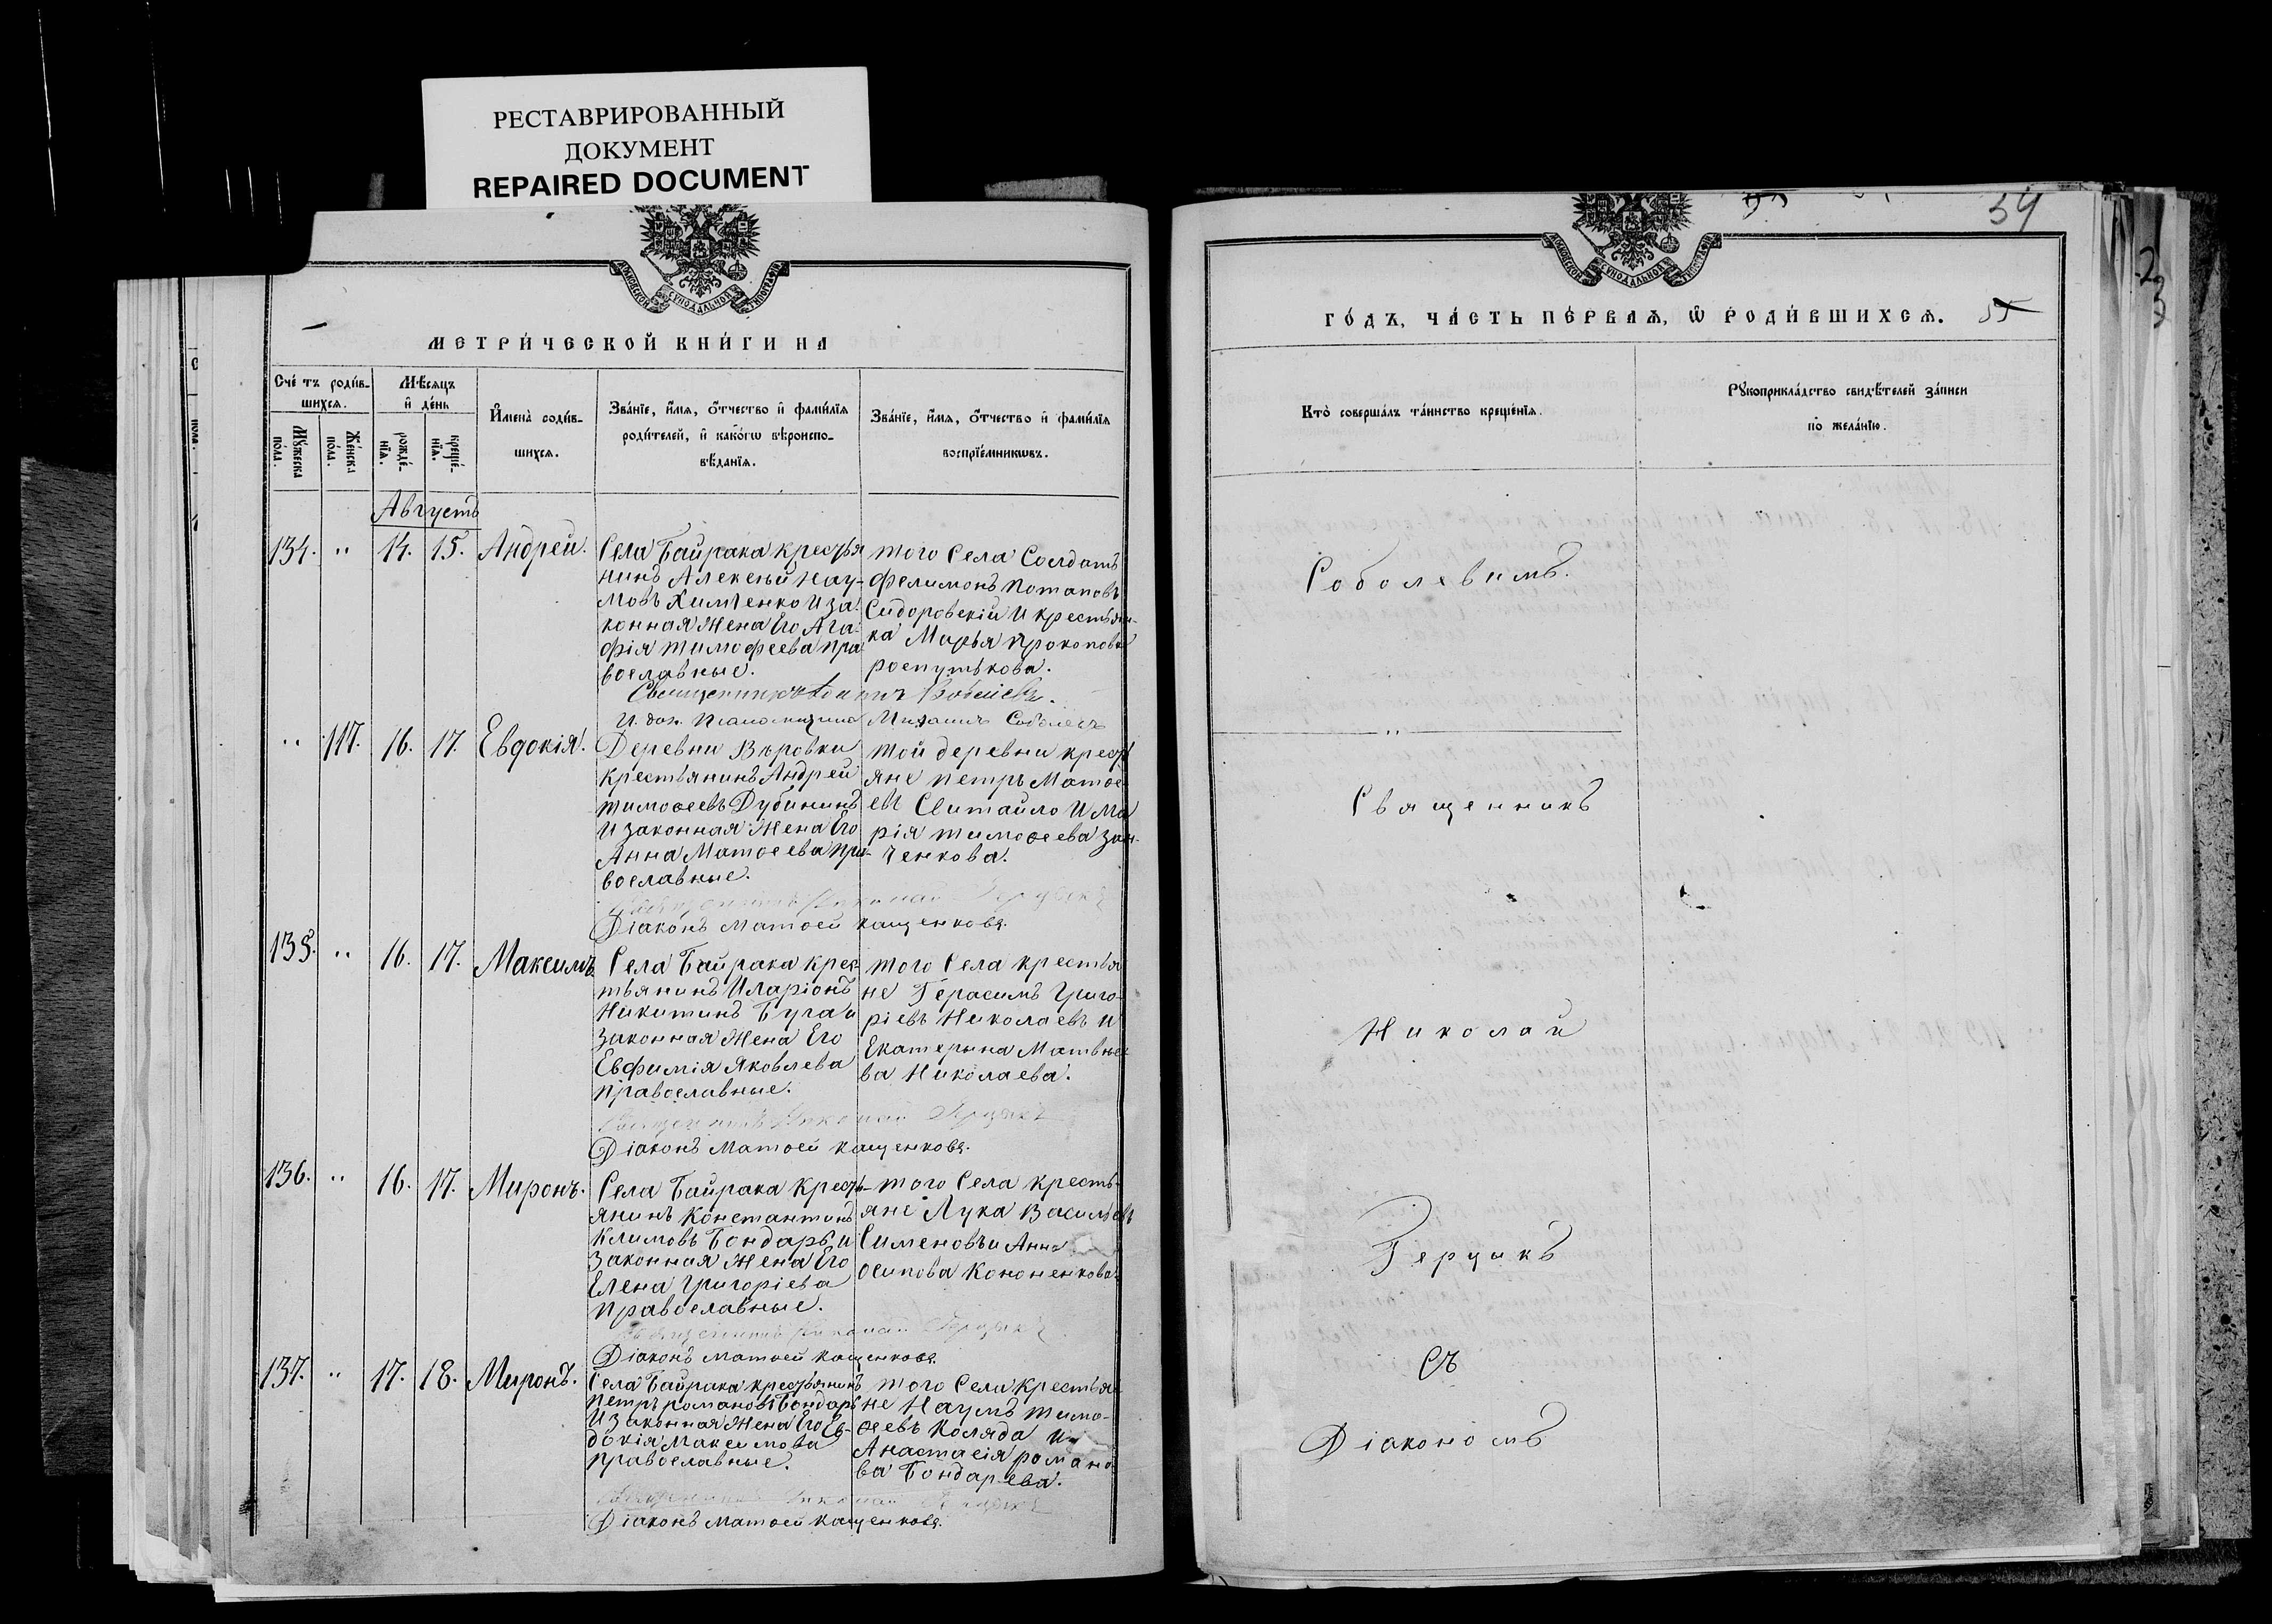 РЕСТАВРИРОВАННЫЙ
ДОКУМЕНТ
REPAIRED DOCUMENT
МОСКОВСКОЙ СѴНОДАЛЬНОЙ ТИПОГРАФІИ
МЕТРИ́ЧЕСКОЙ КНИ́ГИ НА
Сче́тъ роди́в-
шихсѧ.
Мꙋ́жеска
по́ла.
Же́нска
по́ла.
Мѣ́сѧцъ
и҆ де́нь
рожде́-
нїѧ.
креще́-
нїѧ.
И҆мена̀ роди́в-
шихсѧ.
Зва́нїе, и҆́мѧ, ѻ҆́тчество и҆ фами́лїѧ
роди́телей, и҆ како́гѡ вѣроиспо-
вѣ́данїѧ.
Зва́нїе, и҆́мѧ, ѻ҆́тчество и҆ фами́лїѧ
воспрїе́мникѡвъ.
Августъ
134. " 14. 15. Андрей.
Села Байрака крестья
нинъ Алексѣй Нау-
мовъ Химченко и за-
конная жена Его Ага-
фія Тимофеева пра
вославные.
того Села Солдатъ
Филимонъ Потаповъ
Сидоровскій и крестьян-
ка Марья Прокопова
роспутькова.
Священникъ
И. дол. Псаломщика Михаилъ Соболевъ
" 117. 16. 17. Евдокія.
Деревни Вѣровки
крестьянинъ Андрей
Тимоѳеевъ Дубининъ
и законная жена Его
Анна Матѳеева пра-
вославные.
той деревни крестъ
яне Петръ Матѳе
евъ Свитайло и Ма
рія Тимоѳеева
ченкова.
Священникъ Николай Герцыкъ
Діаконъ Матѳей Кащенковъ.
135. " 16. 17. Максимъ
Села Байрака крес-
тьянинъ Иларіонъ
Никитинъ Бугай
законная жена Его
Евфимія Яковлева
православные.
того Села крестья
не Герасимъ Григо-
ріевъ Николаевъ и
Екатерина Матвѣе
ва Николаева.
Священникъ Николай Герцыкъ
Діаконъ Матѳей Кащенковъ.
136. " 16. 17. Миронъ.
Села Байрака кресть-
янинъ Константинъ
Климовъ Бондарь и
законная жена Его
Елена Григоріева
православные.
того Села кресть-
яне Лука Васильевъ
Сименовъ и Анна
Осипова Кононенкова
Священникъ Николай Герцыкъ
Діаконъ Матѳей Кащенковъ.
137. " 17. 18. Миронъ.
Села Байрака крестьянинъ
Петръ Романовъ Бондарь
и законная жена Его Ев-
докія Максимова
православные.
того Села крестья-
не Наумъ Тимо-
ѳеевъ Коляда и
Анастасія Романо
ва Бондарева.
Священникъ Николай Герцыкъ
Діаконъ Матѳей Кащенковъ.
54
МОСКОВСКОЙ СѴНОДАЛЬНОЙ ТИПОГРАФІИ
ГО́ДЪ, ЧА́СТЬ ПЕ́РВАѦ, Ѡ҆ РОДИ́ВШИХСѦ.
55
Кто̀ соверша́лъ та́инство креще́нїѧ.
Рꙋкоприкла́дство свидѣ́телей за́писи
по жела́нїю.
Соболевимъ.
Священникъ
Николай
Герцикъ
съ
Діакономъ